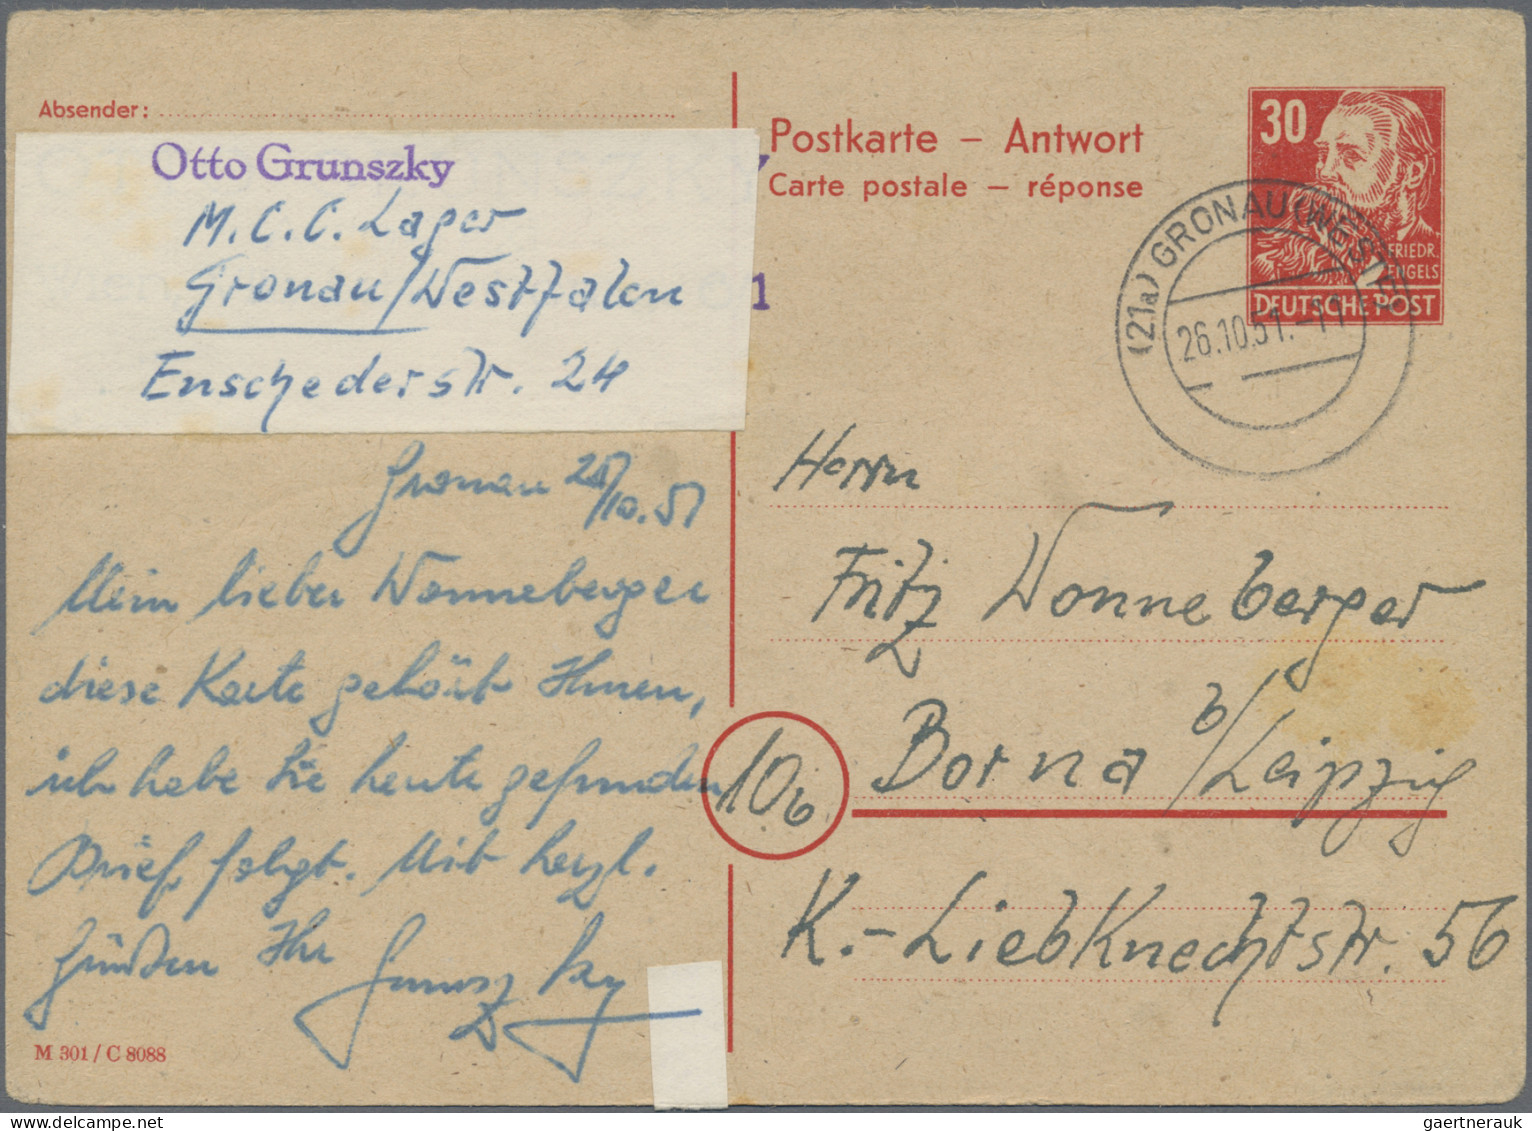 Absender:
Otto Grunszky
M.C.C. Lager
Gronau/Westfalen
Enschederstr. 24
1
Gronau
10.51
Mein lieber Wonneberger
diese Karte gehört Ihnen,
ich habe sie heute gefunden
Brief folgt. Mit herzl.
Grüßen Ihr Grunszky
M 301 / C 8088
Postkarte – Antwort
Carte postale – réponse
30
FRIEDR.
ENGELS
DEUTSCHE POST
(21a) GRONAU (WESTF)
26.10.51.-11
Herrn
Fritz Wonneberger
Borna b/Leipzig
10b
K.-Liebknechtstr. 56
gaertnerauk@delcampe.net